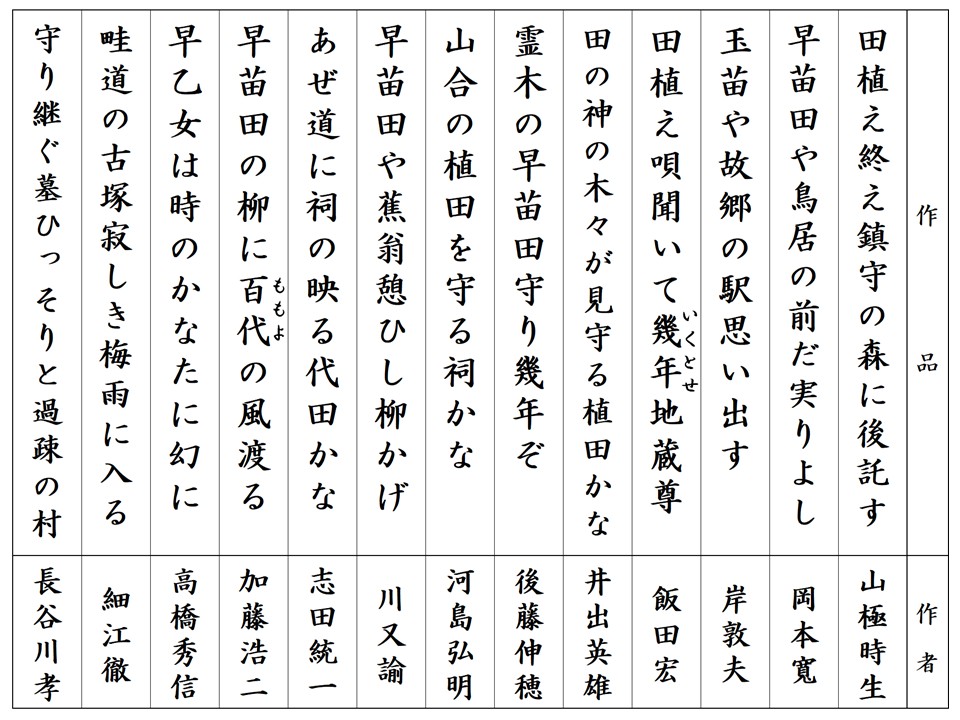 作品
作者
田植え終え鎮守の森に後託す
山極時生
早苗田や鳥居の前だ実りよし
岡本寛
玉苗や故郷の駅思い出す
岸敦夫
田植え唄聞いて幾年地蔵尊
いくとせ
飯田宏
田の神の木々が見守る植田かな
井出英雄
霊木の早苗田守り幾年ぞ
後藤伸穂
山合の植田を守る祠かな
河島弘明
早苗田や蕉翁憩ひし柳かげ
川又諭
あぜ道に祠の映る代田かな
志田統一
早苗田の柳に百代の風渡る
ももよ
加藤浩二
早乙女は時のかなたに幻に
高橋秀信
畦道の古塚寂しき梅雨に入る
細江徹
守り継ぐ墓ひっそりと過疎の村
長谷川孝